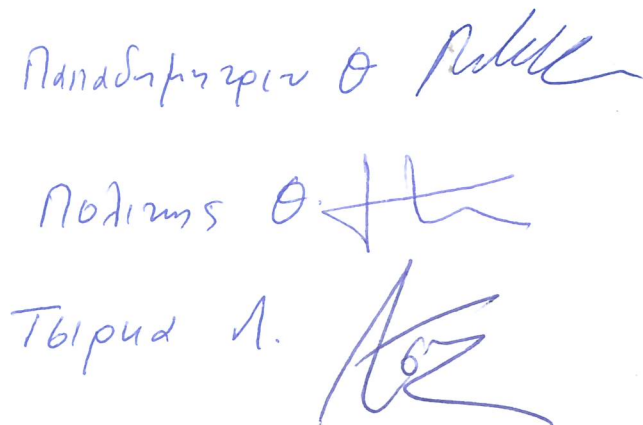 Παπαδημητρίου Θ
Πολίτης Θ.
Τσιρκα Λ.